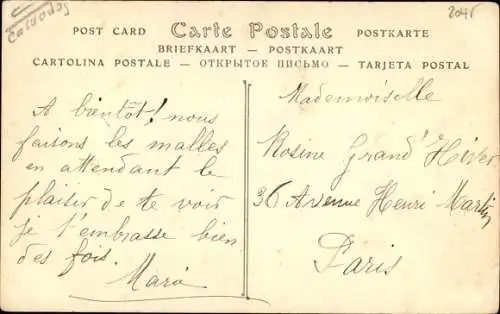 Calvados
2045
POST CARD Carte Postale POSTKARTE
BRIEFKAART — POSTKAART
CARTOLINA POSTALE — ОТКРЫТОЕ ПИСЬМО — TARJETA POSTAL
A bientôt! nous
faisons les malles
en attendant le
plaisir de te voir
je t'embrasse bien
des fois.
Mademoiselle
Rosine Grand'
36 Avenue Henri Martin
Paris